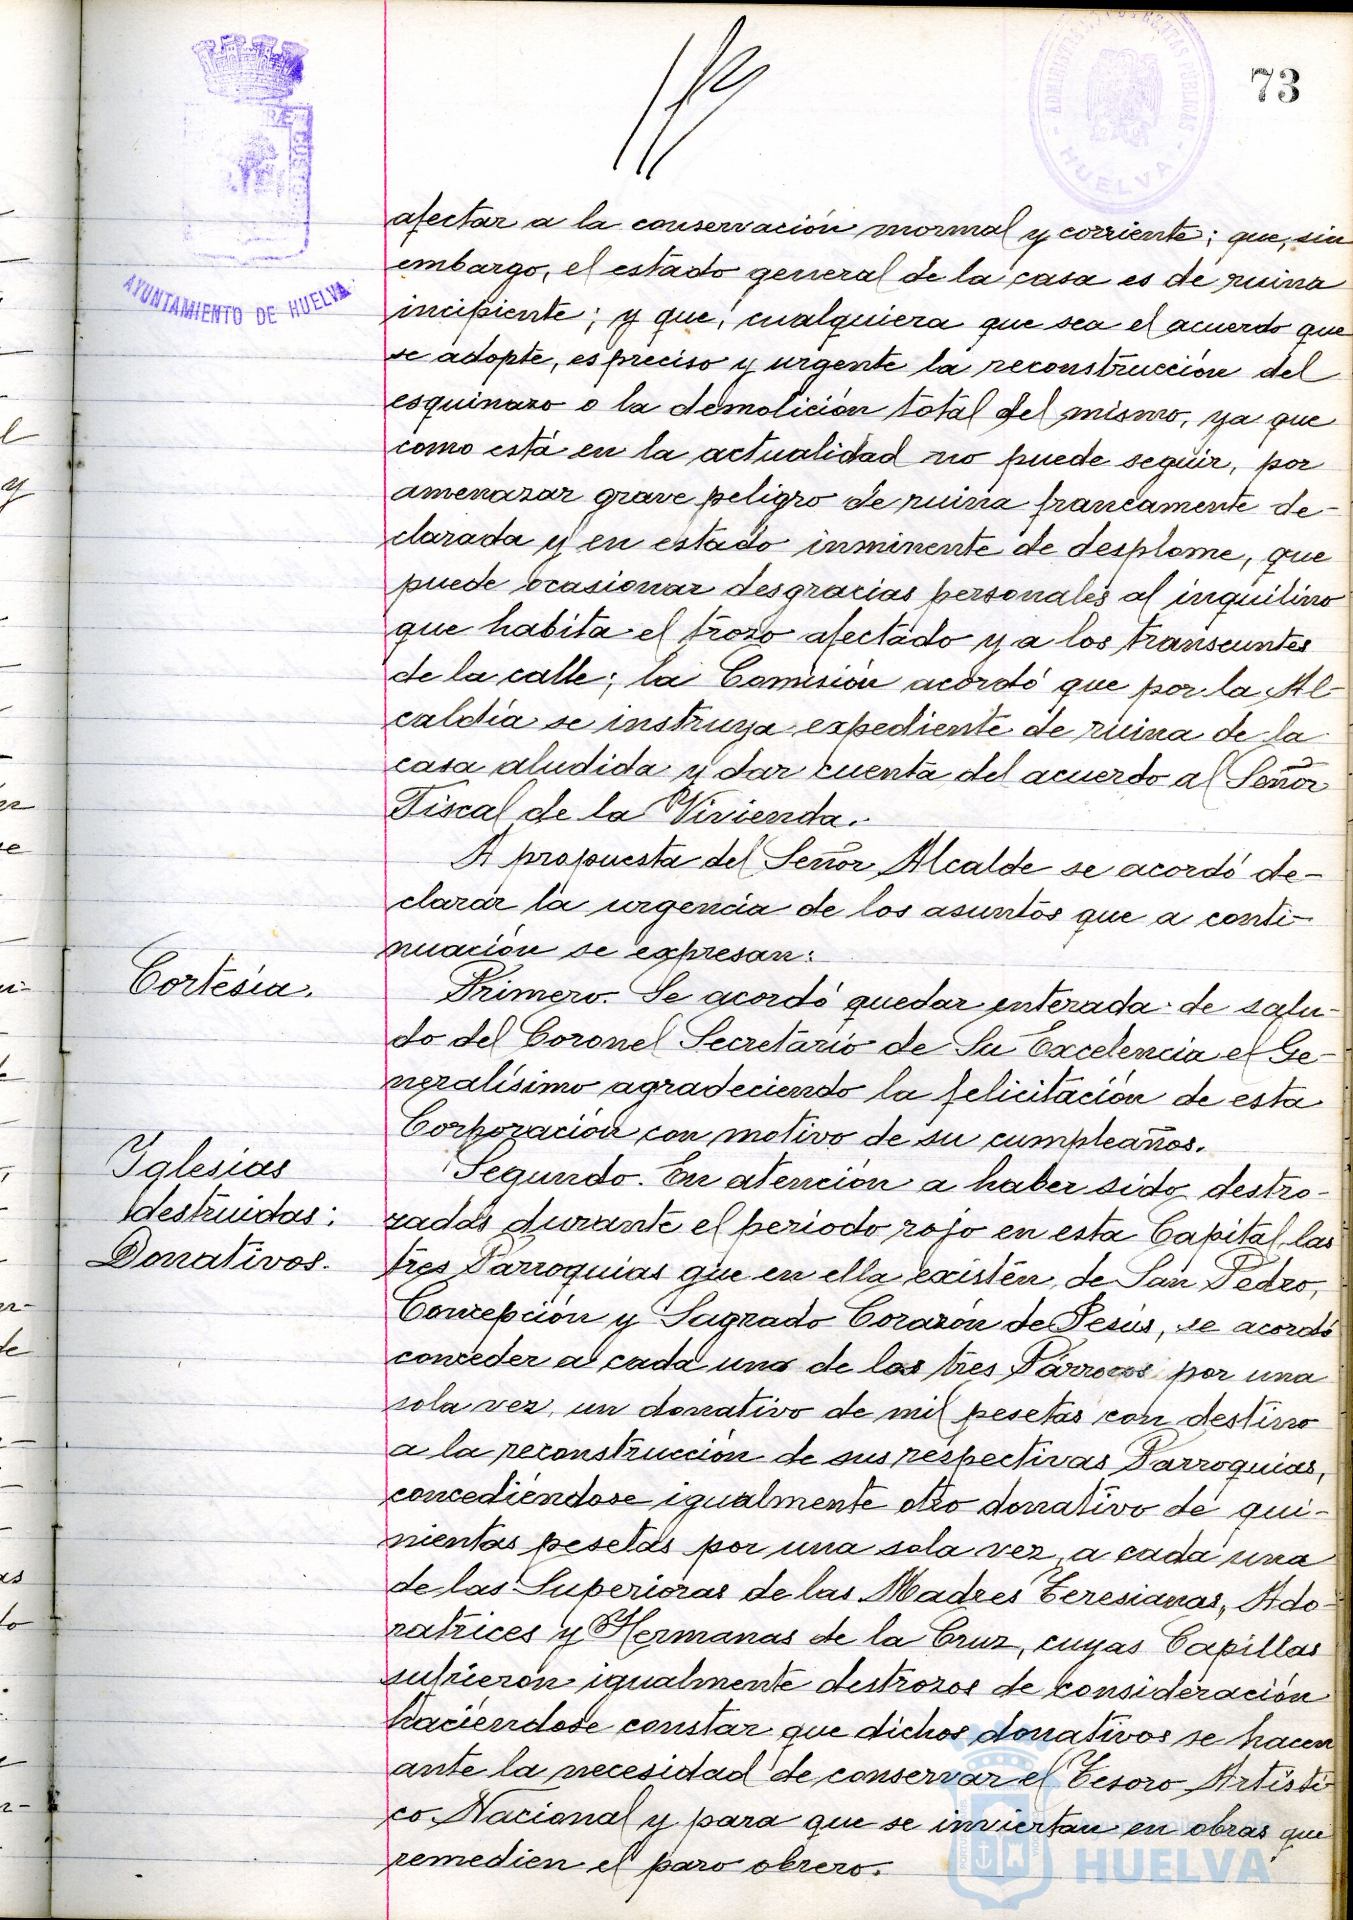 73
ADMINISTRACIÓN DE RENTAS PUBLICAS
- HUELVA -
AYUNTAMIENTO DE HUELVA
afectar a la conservación normal y corriente; que, sin
embargo, el estado general de la casa es de ruina
incipiente; y que, cualquiera que sea el acuerdo que
se adopte, es preciso y urgente la reconstrucción del
esquinazo o la demolición total del mismo, ya que
como está en la actualidad no puede seguir, por
amenazar grave peligro de ruina francamente de-
clarada y en estado inminente de desplome, que
puede ocasionar desgracias personales al inquilino
que habita el trozo afectado y a los transeuntes
de la calle; la Comisión acordó que por la Al-
caldía se instruya expediente de ruina de la
casa aludida y dar cuenta del acuerdo al Señor
Fiscal de la Vivienda.
A propuesta del Señor Alcalde se acordó de-
clarar la urgencia de los asuntos que a conti-
nuación se expresan:
Cortesía.
Primero. Se acordó quedar enterada de salu-
do del Coronel Secretario de Su Excelencia el Ge-
neralísimo agradeciendo la felicitación de esta
Corporación con motivo de su cumpleaños.
Iglesias
destruidas:
Donativos.
Segundo. En atención a haber sido destro-
zadas durante el período rojo en esta Capital las
tres Parroquias que en ella existen, de San Pedro,
Concepción y Sagrado Corazón de Jesús, se acordó
conceder a cada uno de los tres Párrocos por una
sola vez, un donativo de mil pesetas con destino
a la reconstrucción de sus respectivas Parroquias,
concediéndose igualmente otro donativo de qui-
nientas pesetas por una sola vez, a cada una
de las Superioras de las Madres Teresianas, Ado-
ratrices y Hermanas de la Cruz, cuyas Capillas
sufrieron igualmente destrozos de consideración
haciéndose constar que dichos donativos se hacen
ante la necesidad de conservar el Tesoro Artísti-
co Nacional y para que se inviertan en obras que
remedien el paro obrero.
HUELVA